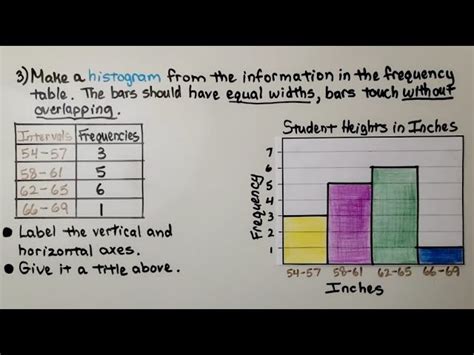 3) Make a histogram from the information in the frequency
table. The bars should have equal widths, bars touch without
overlapping.
Intervals Frequencies
54-57 3
58-61 5
62-65 6
66-69 1
• Label the vertical and
horizontal axes.
• Give it a title above.
Student Heights in Inches
Frequency
7
6
5
4
3
2
1
54-57 58-61 62-65 66-69
Inches